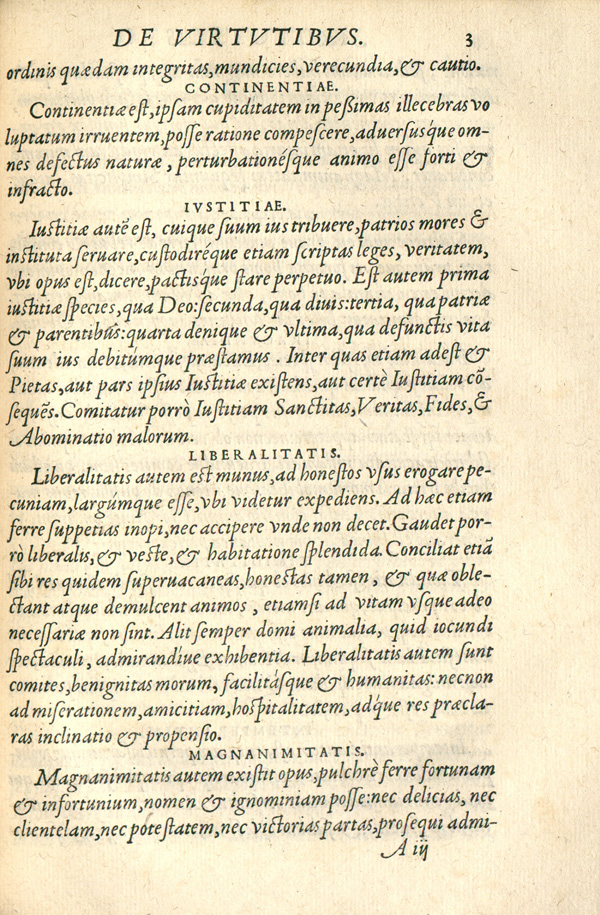 DE VIRTVTIBVS. 3
ordinis quædam integritas, mundicies, verecundia, & cautio.
CONTINENTIAE.
Continentiæ est, ipsam cupiditatem in peßimas illecebras vo
luptatum irruentem, posse ratione compescere, aduersusq́ue om-
nes defectus naturæ, perturbationésque animo esse forti &
infracto.
IVSTITIAE.
Iustitiæ autē est, cuique suum ius tribuere, patrios mores &
instituta seruare, custodiréque etiam scriptas leges, veritatem,
vbi opus est, dicere, pactisq́ue stare perpetuo. Est autem prima
iustitiæ species, qua Deo: secunda, qua diuis: tertia, qua patriæ
& parentibus: quarta denique & vltima, qua defunctis vita
suum ius debitúmque præstamus. Inter quas etiam adest &
Pietas, aut pars ipsius Iustitiæ existens, aut certè Iustitiam cō-
sequēs. Comitatur porrò Iustitiam Sanctitas, Veritas, Fides, &
Abominatio malorum.
LIBERALITATIS.
Liberalitatis autem est munus, ad honestos vsus erogare pe-
cuniam, largúmque esse, vbi videtur expediens. Ad hæc etiam
ferre suppetias inopi, nec accipere vnde non decet. Gaudet por-
rò liberalis, & veste, & habitatione splendida. Conciliat etiā
sibi res quidem superuacaneas, honestas tamen, & quæ oble-
ctant atque demulcent animos, etiamsi ad vitam vsque adeo
necessariæ non sint. Alit semper domi animalia, quid iocundi
spectaculi, admirandíue exhibentia. Liberalitatis autem sunt
comites, benignitas morum, facilitásque & humanitas: necnon
ad miserationem, amicitiam, hospitalitatem, adq́ue res præcla-
ras inclinatio & propensio.
MAGNANIMITATIS.
Magnanimitatis autem existit opus, pulchrè ferre fortunam
& infortunium, nomen & ignominiam posse: nec delicias, nec
clientelam, nec potestatem, nec victorias partas, prosequi admi-
A iij